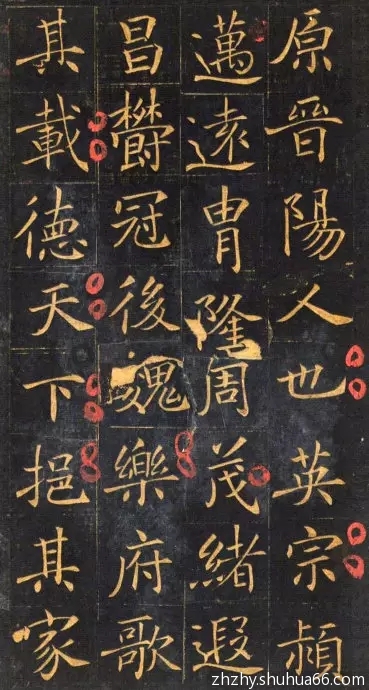 原晉陽人也英宗穎
邁遠胄隆周茂緒遐
昌欝冠後魏樂府歌
其載德天下挹其家
zhzhy.shuhua66.com